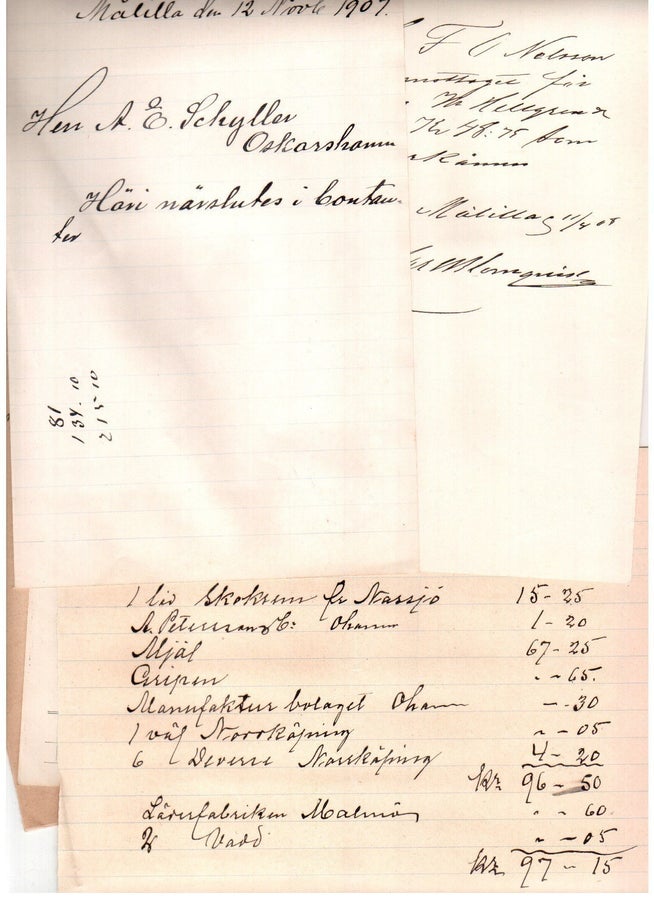 Målilla den 12 Novbr 1907.
Herr A. E. Schyller
Oskarshamn
Häri närslutes i Contan-
ter
81
134.10
215 10
F O Nelsson
för
Kr 48:75 som
Målilla 11/4 08
Blomquist
1 Skokrem fr Nässjö 15-25
A. Peterson & C: Ohamn 1-20
Mjäl 67-25
Gripen - - 65.
Manufaktur bolaget Ohamn - - 30
1 väf Norrköping - - 05
6 Diverse Norrköping 4-20
Kr. 96-50
Läderfabriken Malmö - - 60.
Vadd - - 05
Kr. 97-15